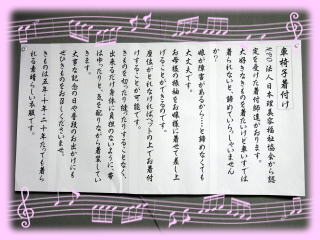 車椅子着付け
NPO法人日本理美容福祉協会から認
定を受けた着付師達がおります。
大好きなきものを着たいけど車いすでは
着られないと、諦めていらっしゃいません
か?
娘が障害があるから…と諦めなくても
大丈夫です。
お母様の振袖をお嬢様に着せて差し上
げることができるのです。
座位がとれなければベットの上でお着付
けすることが可能です。
きものを切ったり縫ったりすることなく、
出きるだけ身体に負担のないように、帯
はゆったりと、気を配りながら着装してい
きます。
大事な記念の日や普段のお出かけにも
ぜひきものをお召しくださいませ。
きものは五年・十年・二十年たっても着ら
れる素晴らしい衣服です。